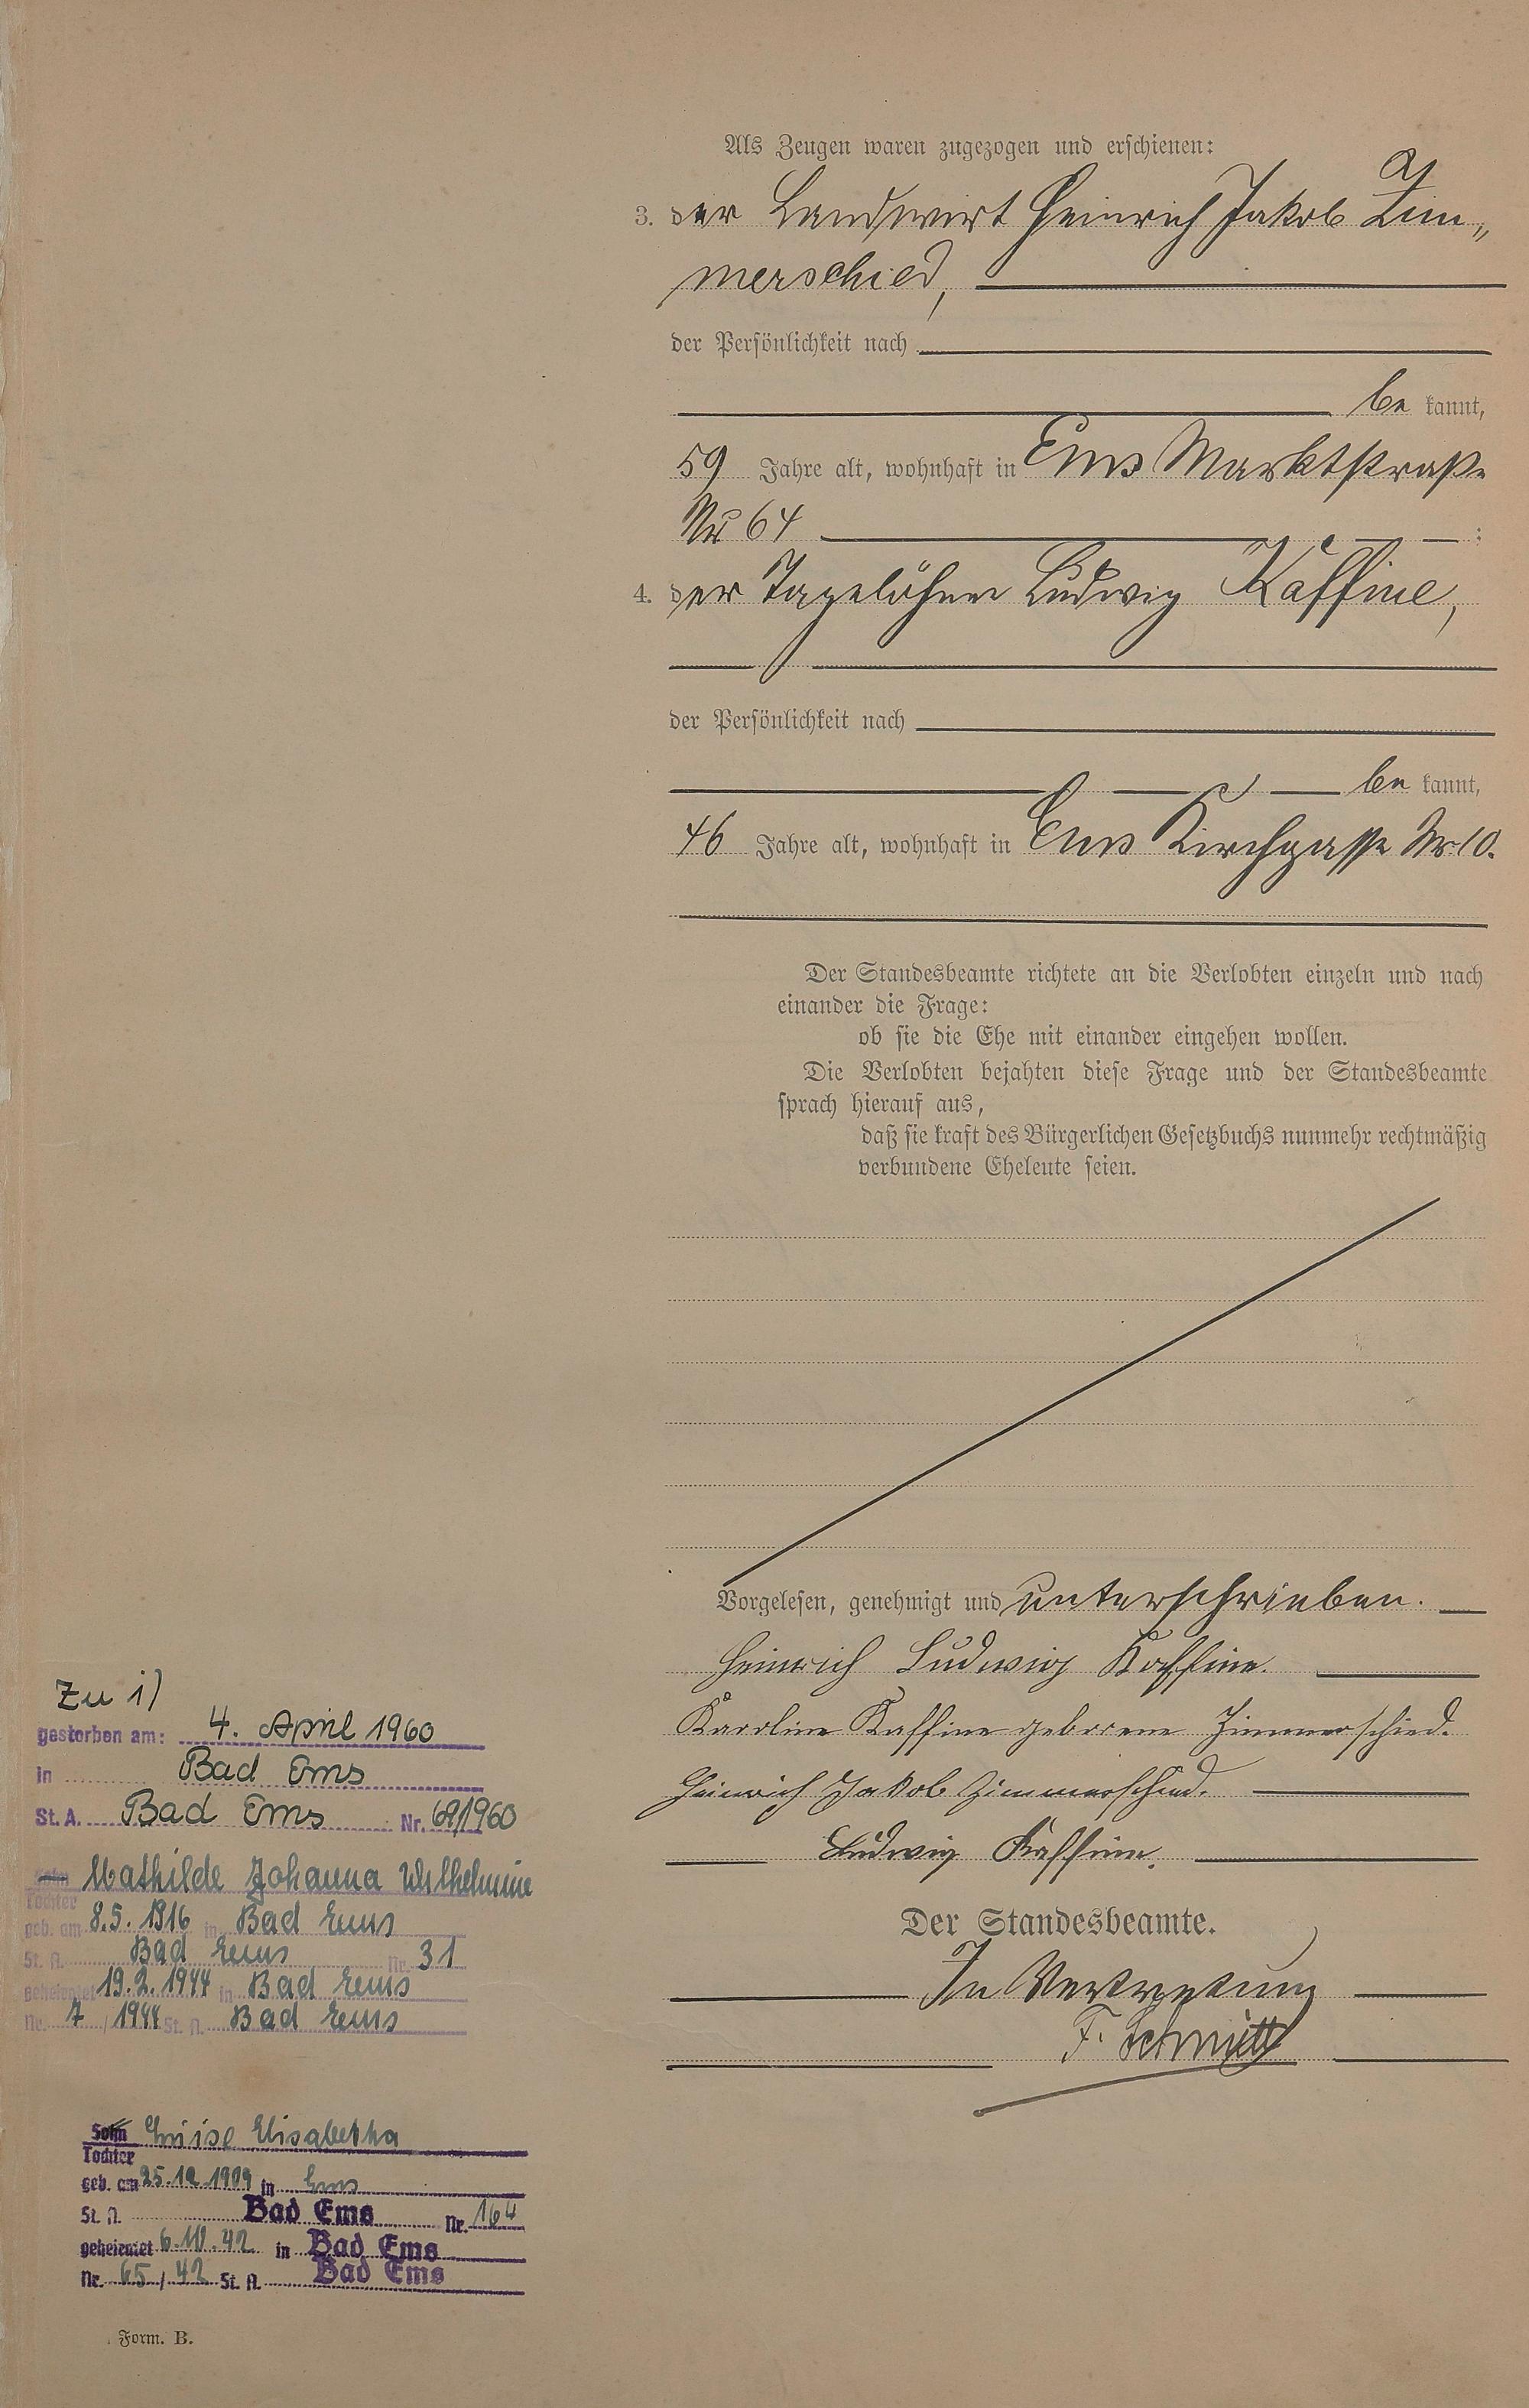 Als Zeugen waren zugezogen und erschienen:
3. der Landwirt Heinrich Jakob Zim„
merschied,
der Persönlichkeit nach
be kannt,
59 Jahre alt, wohnhaft in Ems Marktstraße
Nr 64 :
4. der Tagelöhner Ludwig Kaffine,
der Persönlichkeit nach
be kannt,
46 Jahre alt, wohnhaft in Ems Kirchgasse Nr 10.
Der Standesbeamte richtete an die Verlobten einzeln und nach
einander die Frage:
ob sie die Ehe mit einander eingehen wollen.
Die Verlobten bejahten diese Frage und der Standesbeamte
sprach hierauf aus,
daß sie kraft des Bürgerlichen Gesetzbuchs nunmehr rechtmäßig
verbundene Eheleute seien.
Vorgelesen, genehmigt und unterschrieben.
Heinrich Ludwig Kaffine.
Karoline Kaffine geborene Zimmerschied.
Heinrich Jakob Zimmerschied.
Ludwig Kaffine.
Der Standesbeamte.
In Vertretung
F. Schmitt
Zu 1)
gestorben am: 4. April 1960
in Bad Ems
St. A. Bad Ems Nr. /1960
Sohn Mathilde Johanna Wilhelmine
Tochter
geb. am 8.5.1916 in Bad Ems
St. A. Bad Ems Nr. 31
geheiratet 19.2.1944 in Bad Ems
Nr. 7 / 1944 St. A. Bad Ems
Sohn Luise Elisabetha
Tochter
geb. am 25.12.1909 in Ems
St. A. Bad Ems Nr. 164
geheiratet 6.10.42 in Bad Ems
Nr. 65 / 42 St. A. Bad Ems
Form. B.